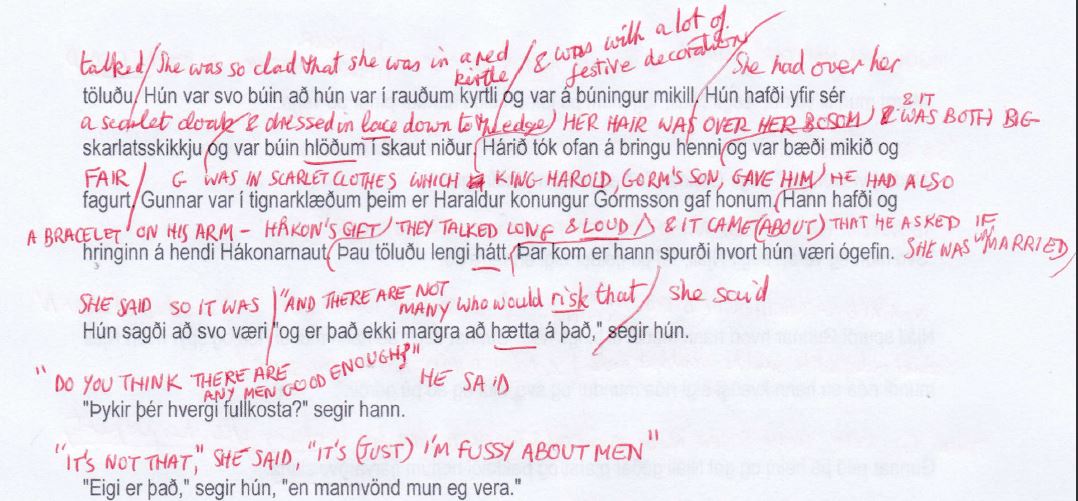 talked / She was so clad that she was in a red kirtle / & was with a lot of festive decoration / She had over her
töluðu. Hún var svo búin að hún var í rauðum kyrtli og var á búningur mikill. Hún hafði yfir sér
a scarlet cloak & dressed in lace down to the edge) HER HAIR WAS OVER HER BOSOM / & IT WAS BOTH BIG
skarlatsskikkju og var búin hlöðum í skaut niður. Hárið tók ofan á bringu henni og var bæði mikið og
FAIR / G WAS IN SCARLET CLOTHES WHICH KING HAROLD, GORM'S SON, GAVE HIM / HE HAD ALSO
fagurt. Gunnar var í tignarklæðum þeim er Haraldur konungur Gormsson gaf honum. Hann hafði og
A BRACELET ON HIS ARM - HÅKON'S GIFT / THEY TALKED LONG & LOUD / & IT CAME (ABOUT) THAT HE ASKED IF SHE WAS UNMARRIED
hringinn á hendi Hákonarnaut. Þau töluðu lengi hátt. Þar kom er hann spurði hvort hún væri ógefin.
SHE SAID SO IT WAS / "AND THERE ARE NOT MANY who would risk that / she said
Hún sagði að svo væri "og er það ekki margra að hætta á það," segir hún.
"DO YOU THINK THERE ARE ANY MEN GOOD ENOUGH?" HE SAID
"Þykir þér hvergi fullkosta?" segir hann.
"IT'S NOT THAT," SHE SAID, "IT'S (JUST) I'M FUSSY ABOUT MEN"
"Eigi er það," segir hún, "en mannvönd mun eg vera."